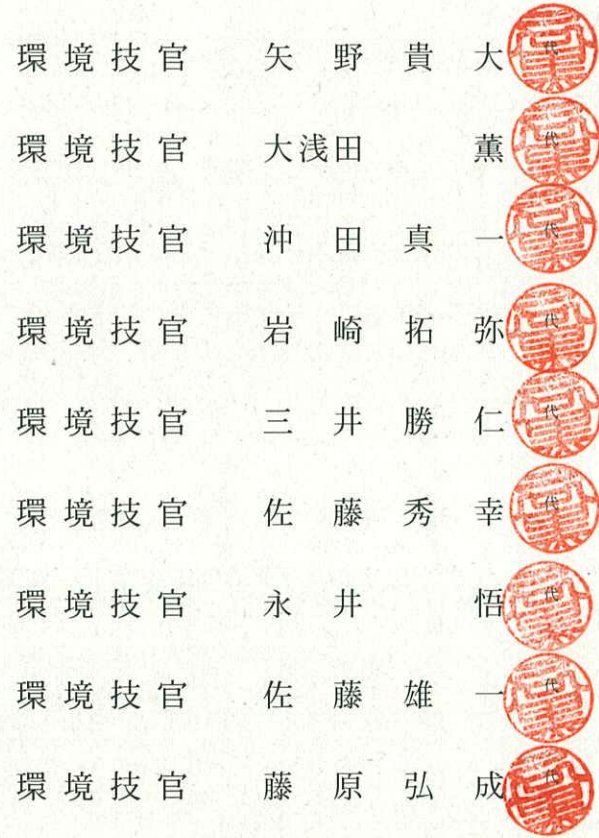 環境技官 矢野貴大 代
環境技官 大浅田 薫 代
環境技官 沖田真一 代
環境技官 岩崎拓弥 代
環境技官 三井勝仁 代
環境技官 佐藤秀幸 代
環境技官 永井 悟 代
環境技官 佐藤雄一 代
環境技官 藤原弘成 代